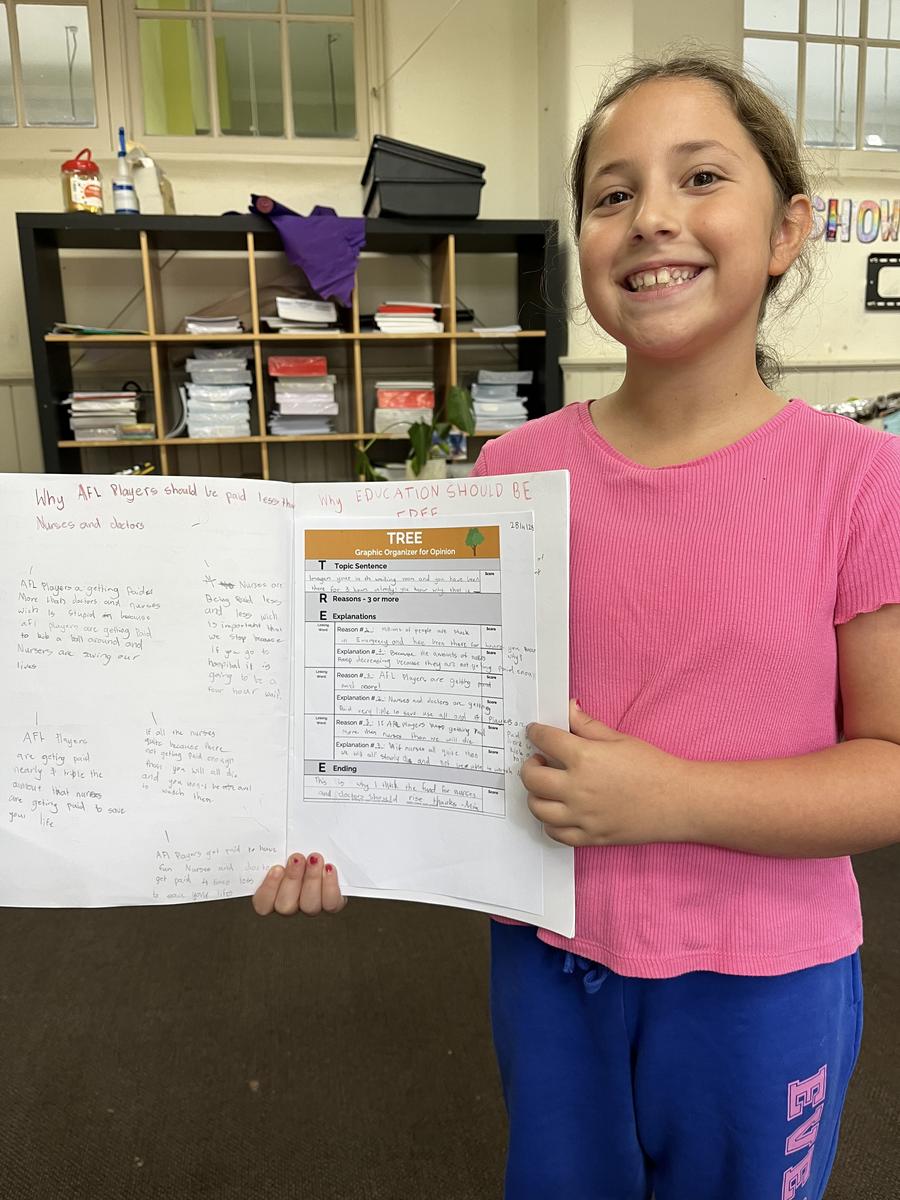 Why AFL Players should be paid less tha
Nurses and doctors
AFL Players a getting Paide
More than doctors and nurses
wich is stupid because
afl players are getting Paid
to kik a ball around and
Nursers are saving our
lives
Nurses are
Being paid less
and less wich
is important that
we stop because
If you go to
hospital it is
going to be a
four hour wait.
AFL Players
are getting paid
nearly triple the
amount that nurses
are getting paid to save
your life
if all the nurses
quite because there
not getting paid enough
then you will all die
and you
to watch them
AFL Players get paid to have
fun Nurses and doctors
get paid 4 times less
to save your lifes
Why EDUCATION SHOULD BE
FREE
TREE
Graphic Organizer for Opinion
T Topic Sentence
Score
in a waiting room and you have been
there for 3 hours
R Reasons - 3 or more
E Explanations
Linking Word
Reason # 1: millions of people are stuck
in Emergency and have been there for hours
Score
Explanation # 1: Because the amounts of nurses
keep decreasing because they are not getting paid enough
Score
Linking Word
Reason # 2: AFL Players are getting paid
and more!
Score
Explanation # 2: Nurses and doctors are getting
Paid very little to save
Score
Linking Word
Reason # 3: If AFL Players keep getting paid
more then nurses then we will die
Score
Explanation # 3: if nurses all quite then
we will all slowly die and not
Score
E Ending
This is why I think the fund for nurses
and doctors should rise thanks
Score
SHOW
EVE